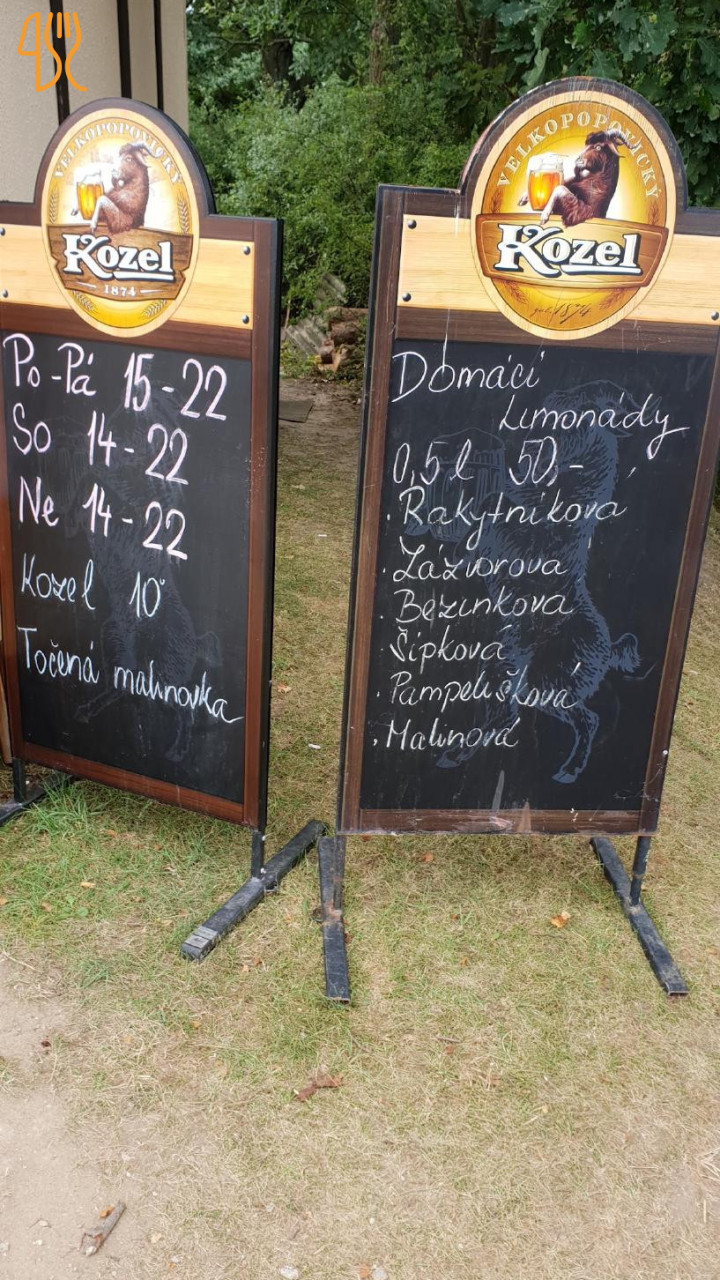 VELKOPOPOVICKÝ
Kozel
1874
Po-Pá 15-22
So 14-22
Ne 14-22
Kozel 10°
Točená malinovka
VELKOPOPOVICKÝ
Kozel
1874
Domácí
Limonády
0,5l 50,-
• Rakytníková
• Zázvorova
• Bezinkova
• Šípková
• Pampelišková
• Malinová